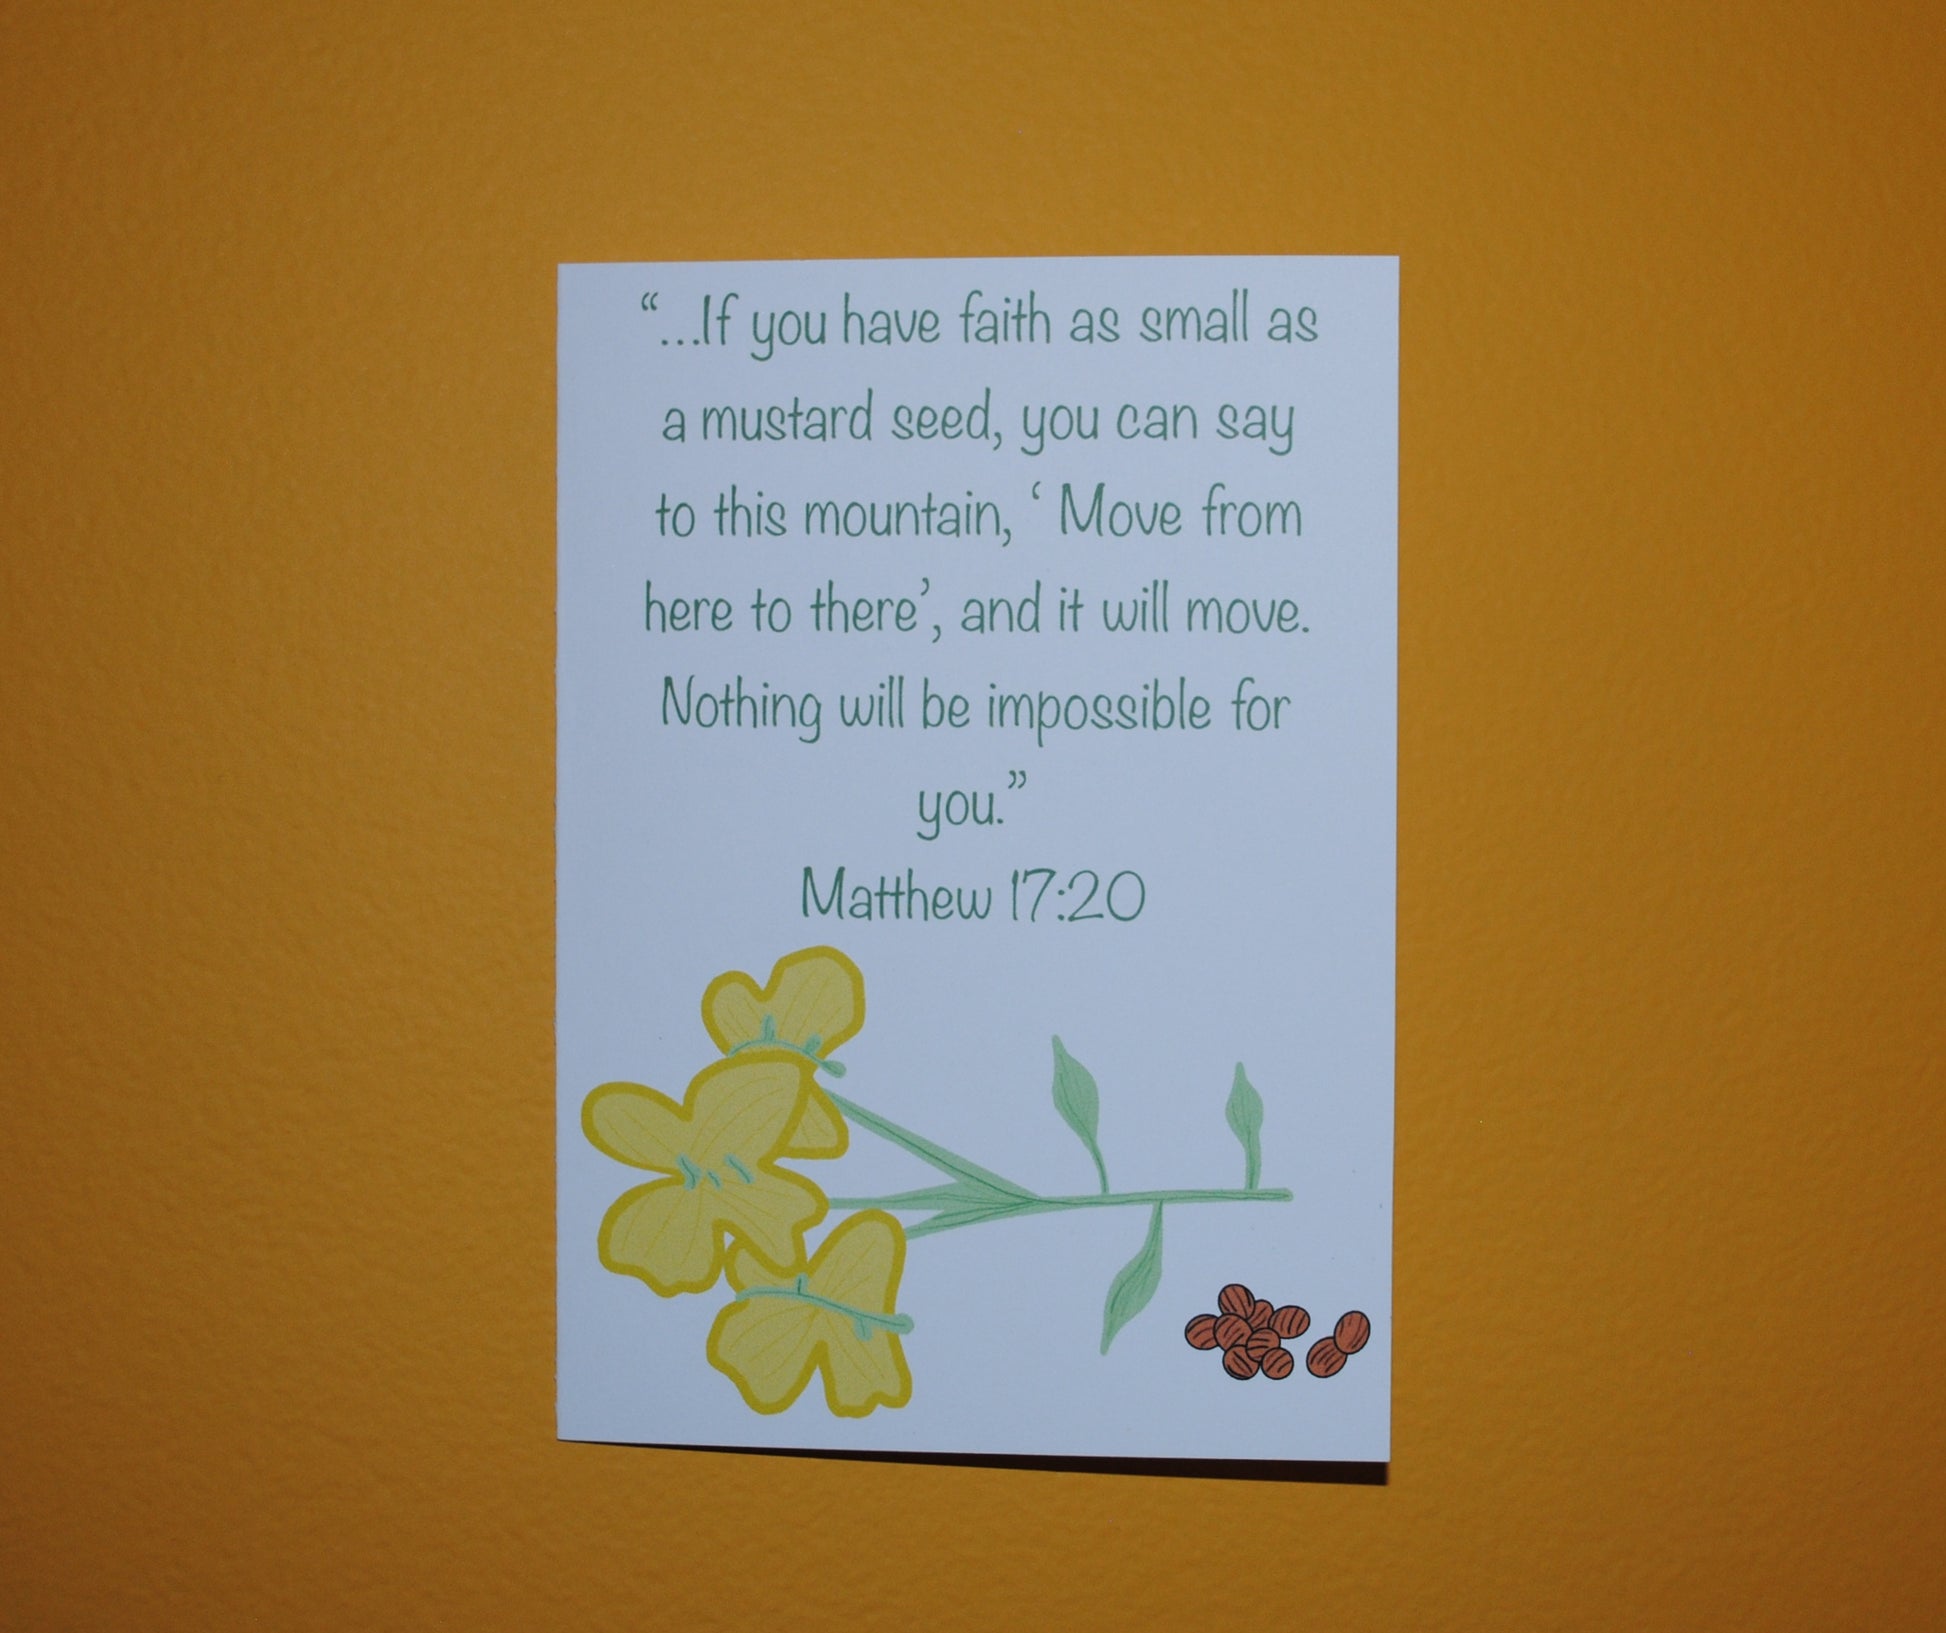 “...If you have faith as small as
a mustard seed, you can say
to this mountain, ‘ Move from
here to there’, and it will move.
Nothing will be impossible for
you.”
Matthew 17:20